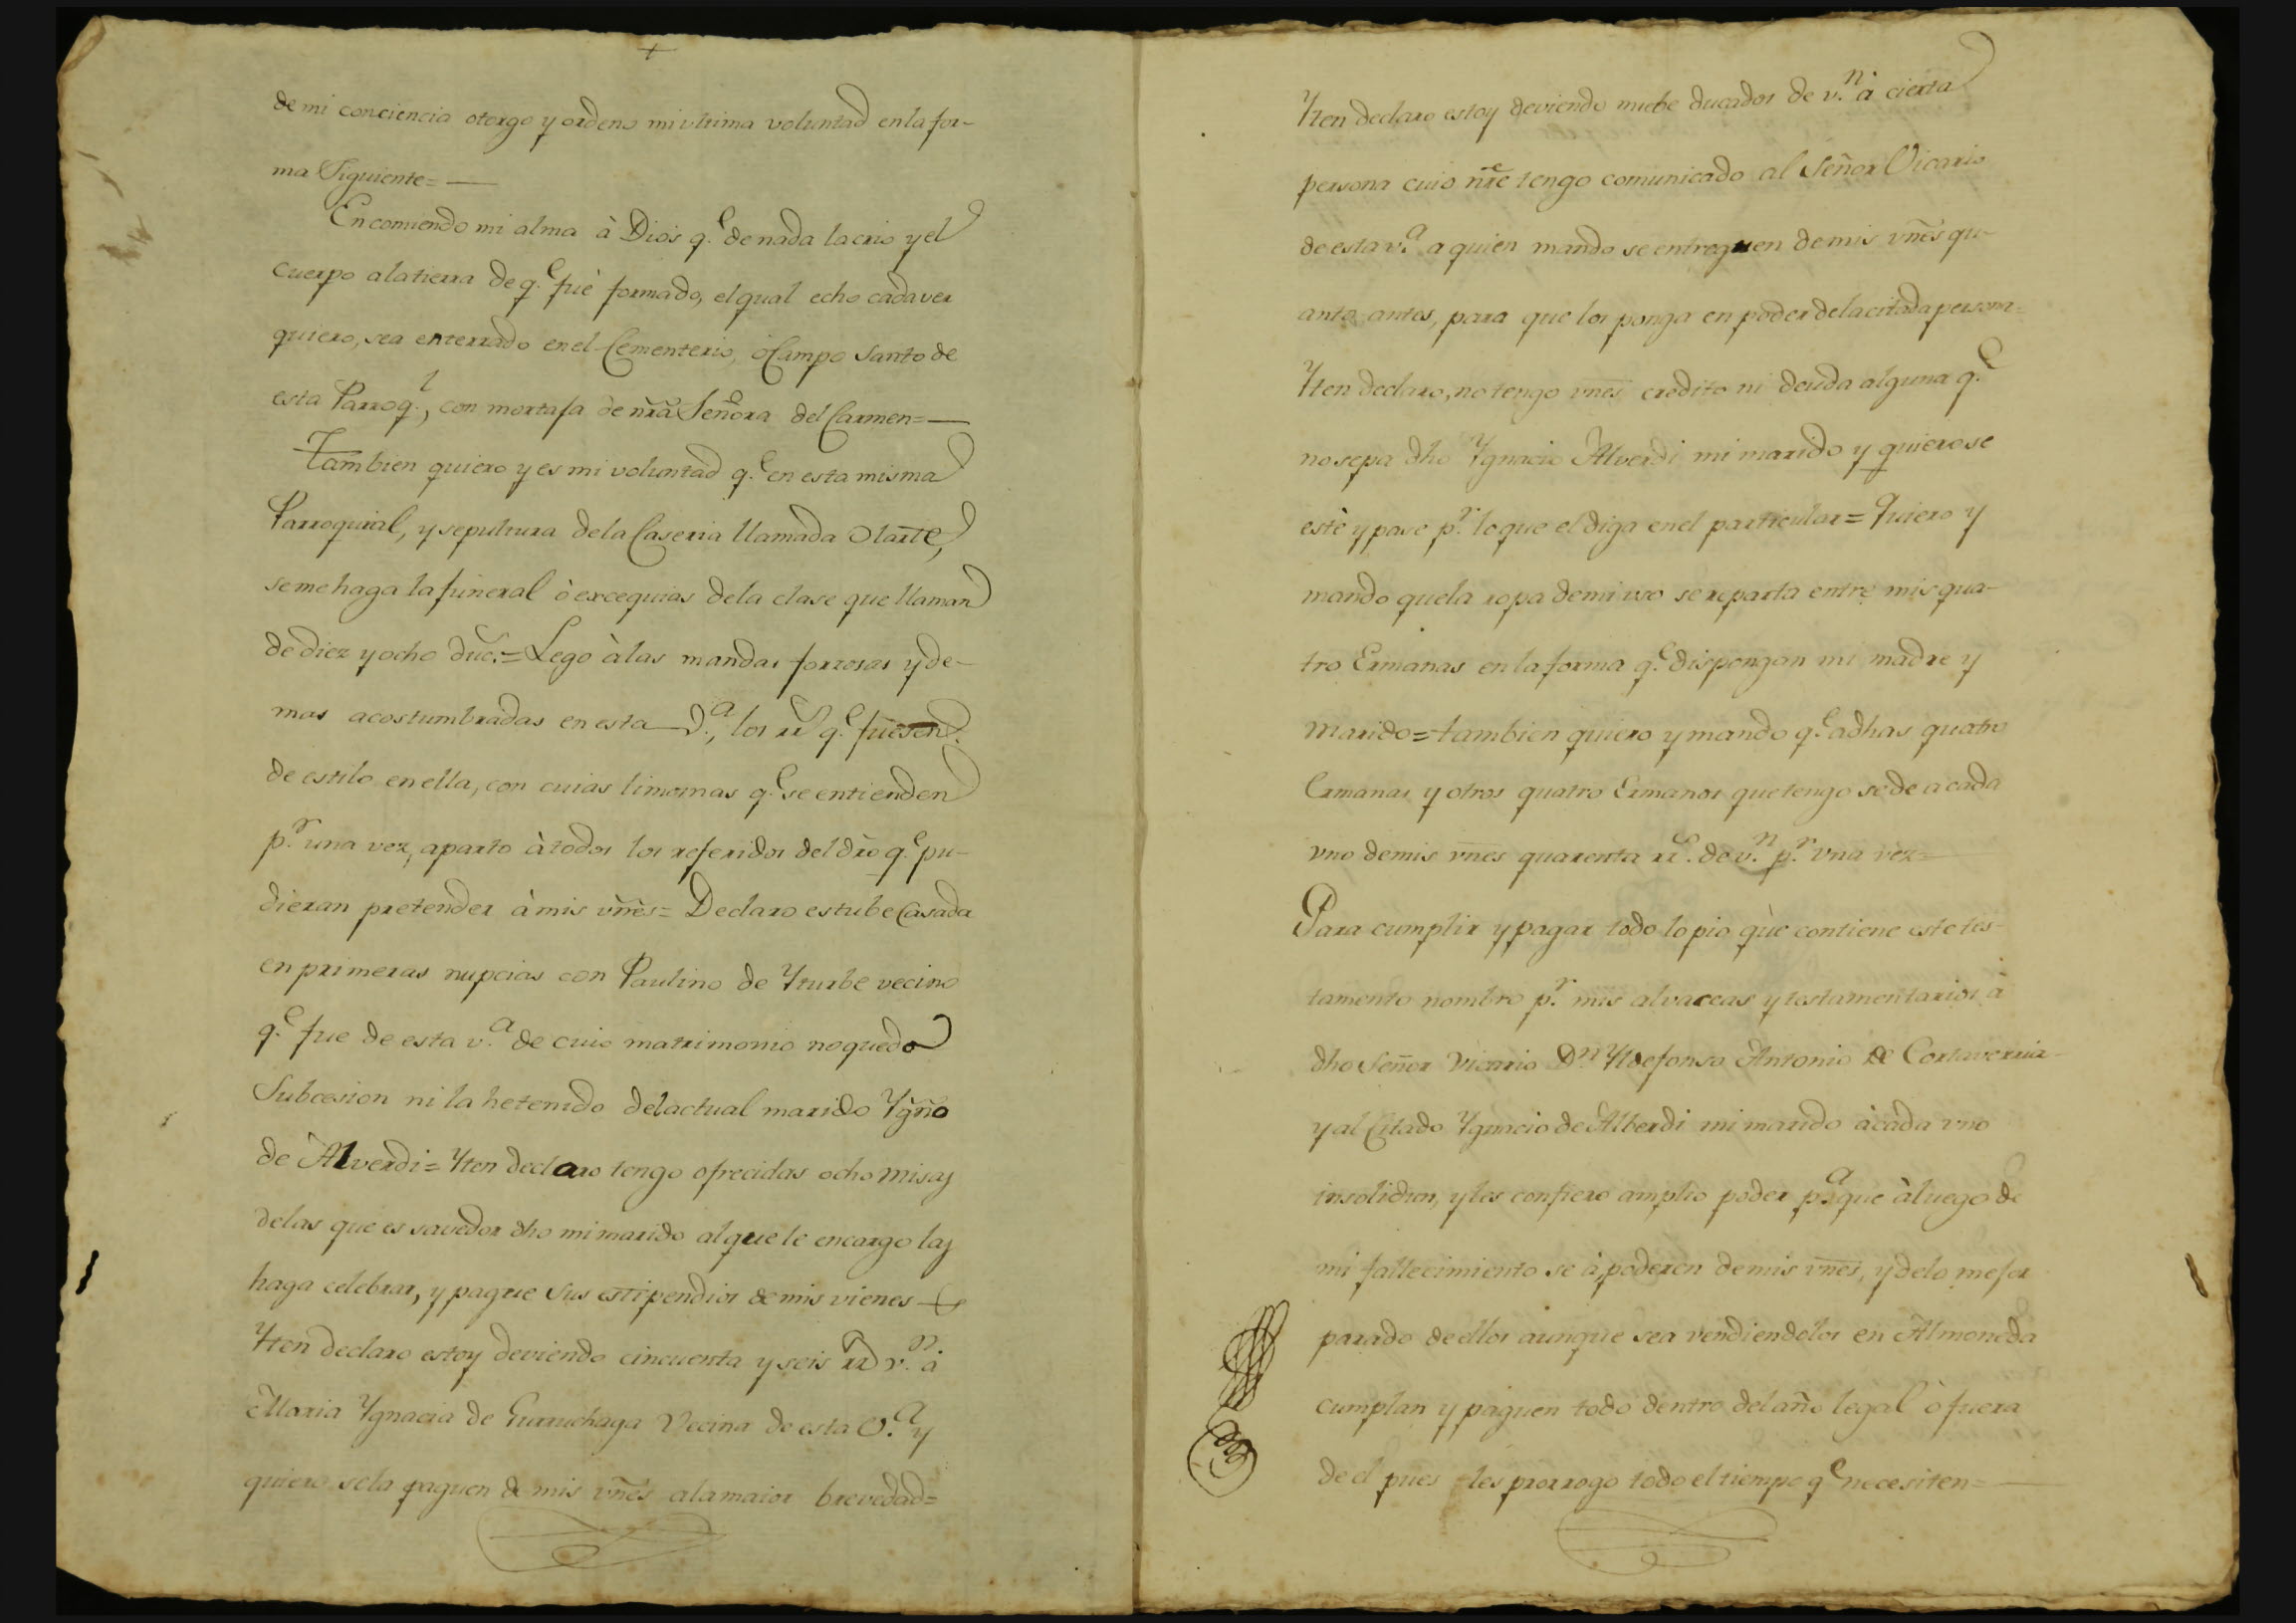 +
de mi conciencia otorgo y ordeno mi vltima voluntad en la for-
ma Siguiente= —
Encomiendo mi alma à Dios q.e de nada la crio y el
cuerpo a la tierra de q.e fuè formado, el qual echo cadaver
quiero, sea enterrado en el Cementerio, ò Campo Santo de
esta Parroq.l, con mortaja de nrã Señora del Carmen= —
Tambien quiero y es mi voluntad q.e en esta misma
Parroquial, y sepultura de la Caseria llamada Olarte,
se me haga la funeral ò excequias de la clase que llaman
de diez y ocho duc.s= Lego à las mandas forzosas y de-
mas acostumbradas en esta V.a, los rr.s q.e fuesen
de estilo en ella, con cuias limosnas q.e se entienden
p.r una vez, aparto à todos los referidos del dro q.e pu-
dieran pretender à mis vnẽs= Declaro estube Casada
en primeras nupcias con Paulino de Yturbe vecino
q.e fue de esta v.a de cuio matrimonio no quedo
Subcesion ni la he tenido del actual marido Ygño
de Alverdi= Yten declaro tengo ofrecidas ocho misas
de las que es savedor dho mi marido al que le encargo las
haga celebrar, y pague sus estipendios de mis vienes
Yten declaro estoy deviendo cincuenta y seis rr.s v.n à
Maria Ygnacia de Gurruchaga Vecina de esta V.a y
quiero se la paguen de mis vnẽs a la maior brevedad=
Yten declaro estoy deviendo nuebe ducados de v.n à cierta
persona cuio nrẽ tengo comunicado al Señor Vicario
de esta v.a a quien mando se entreguen de mis vnẽs qu-
anto antes, para que los ponga en poder de la citada persona=
Yten declaro, no tengo vnẽs credito ni deuda alguna q.e
no sepa dho Ygnacio Alverdi mi marido y quiero se
estè y pase p.r lo que el diga en el particular= Quiero y
mando que la ropa de mi uso se reparta entre mis qua-
tro Ermanas en la forma q.e dispongan mi madre y
marido= tambien quiero y mando q.e a dhas quatro
Ermanas y otros quatro Ermanos que tengo se de a cada
vno de mis vnẽs quarenta rr.s de v.n p.r vna vez=
Para cumplir y pagar todo lo pio què contiene este tes-
tamento nombro p.r mis alvaceas y testamentarios à
dho Señor Vicario D.n Yldefonso Antonio de Cortaverria
y al Citado Ygnacio de Alberdi mi marido à cada vno
insolidun, y les confiero amplio poder p.a que à luego de
mi fallecimiento se àpoderen de mis vnẽs, y de lo mejor
parado de ellos aunque sea vendiendolos en Almoneda
cumplan y paguen todo dentro del año legal ò fuera
de el pues les prorrogo todo el tiempo q.e necesiten= —